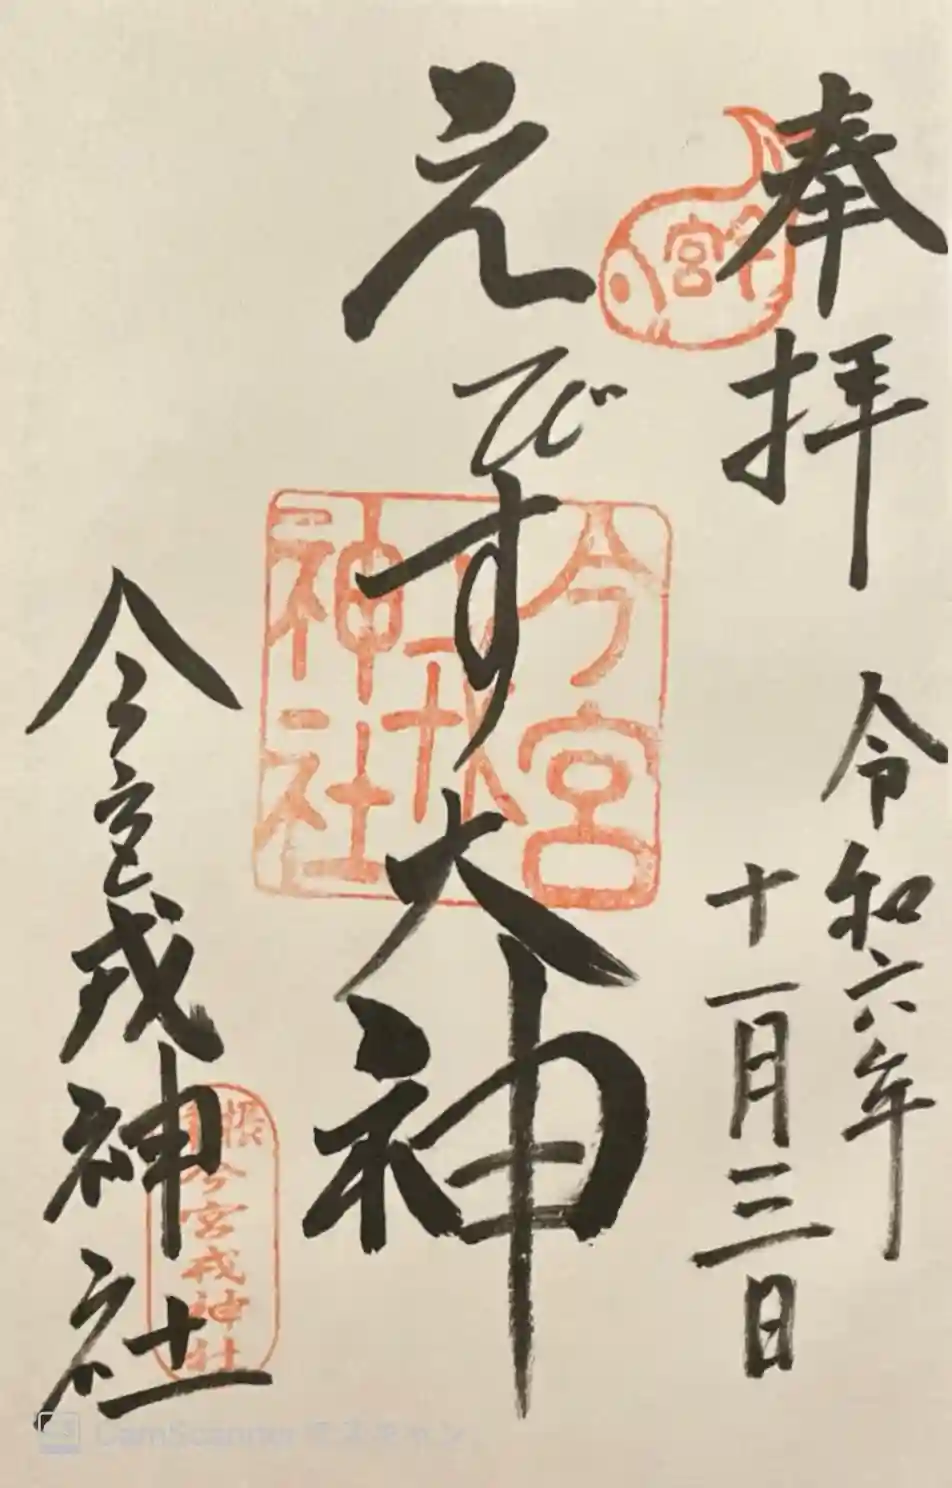 奉拝
令和六年
十一月三日
今宮
えびす大神
今宮
戎
神社
今宮戎神社
今宮戎神社
CamScanner でスキャン